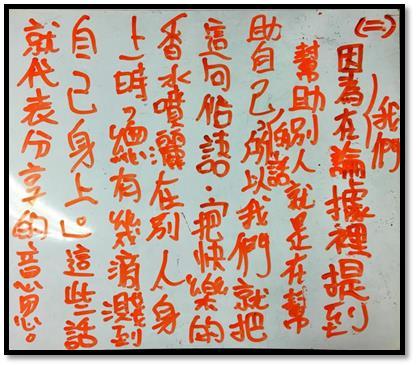 (二)
因為我們在論據裡提到
幫助別人就是在幫
助自己的話所以我們就把
這句俗語:「把快樂的
香水噴灑在別人身
上時,總有幾滴濺到
自己身上。」這些話
就代表分享的意思。